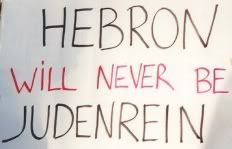 HEBRON
WiLL NEVER BE
JUDENREIN